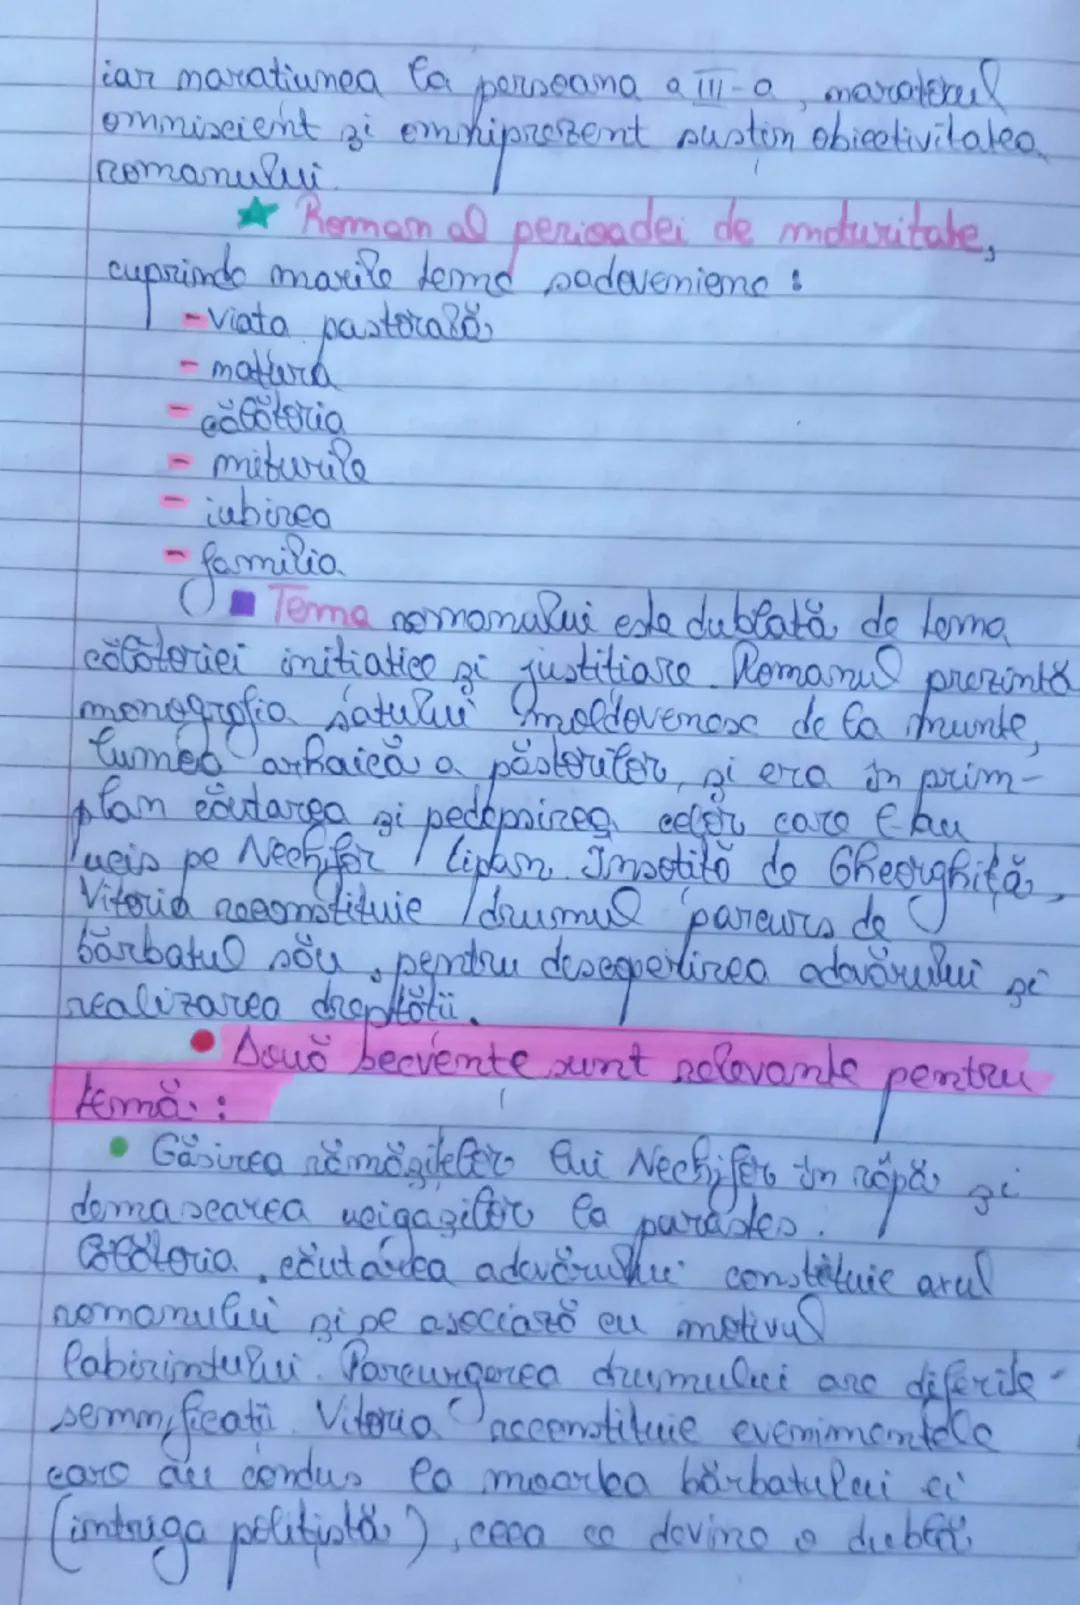 iar naratiunea la persoana a III-a, naratorul
omniscient și omniprezent sustin obiectivitatea
romanului.
Roman al perioadei de maturitate,
cuprinde marile teme sadoveniene :
- Viata pastorală
- natura
- călătoria
- miturile
- iubirea
- familia
Tema romanului este dublată de tema
călătoriei initiatice și justitiare. Romanul prezintă
monografia satului moldovenesc de la munte,
lumea arhaică a păstorilor, și era în prim-
plan căutarea și pedepsirea celor care l-au
ucis pe Nechifor Lipan. Însotită de Gheorghită,
Vitoria reconstituie drumul parcurs de
bărbatul său, pentru desecperirea adevărului și
realizarea dreptătii.
Două secvente sunt relevante pentru
temă :
Găsirea rămășitelor lui Nechifor în râpă și
demascarea ucigașilor la parastas.
Călătoria, căutarea adevărului constituie axul
romanului și se asociază cu motivul
labirintului. Parcurgerea drumului are diferite
semnificatii. Vitoria reconstituie evenimentele
care au condus la moartea bărbatului ei
(intriga politistă), ceea ce devine o dublă